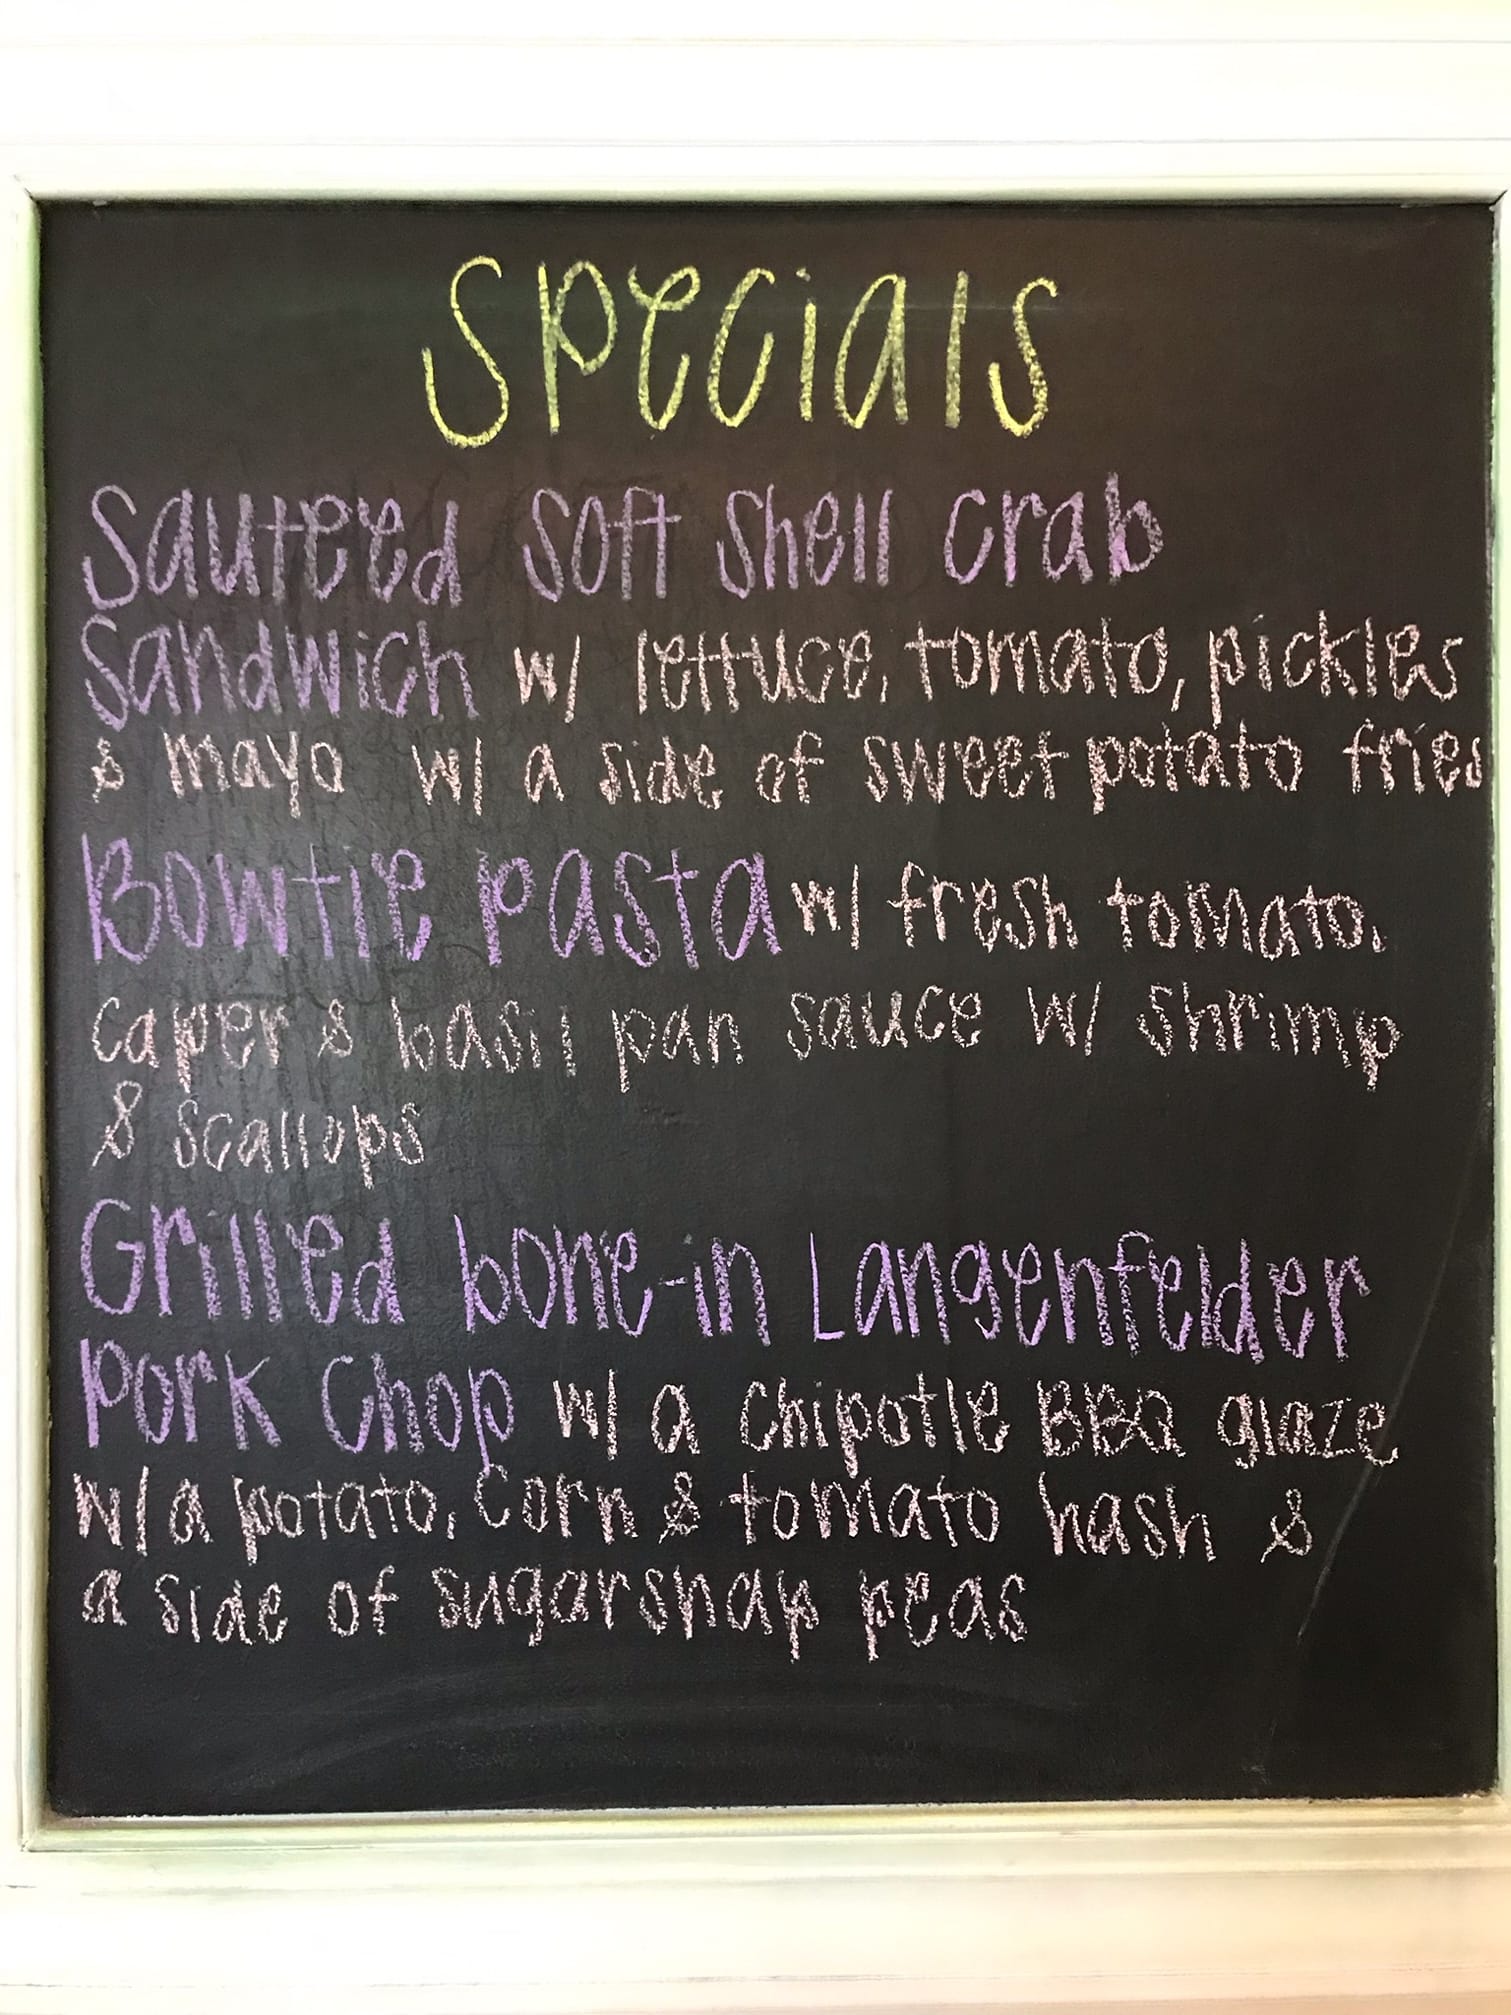 Specials
Sauteed Soft Shell Crab
Sandwich w/ lettuce, tomato, pickles
& mayo w/ a side of sweet potato fries
Bowtie Pasta w/ fresh tomato,
caper & basil pan sauce w/ shrimp
& scallops
Grilled bone-in Langenfelder
Pork Chop w/ a chipotle BBQ glaze
w/ a potato, corn & tomato hash &
a side of sugarsnap peas